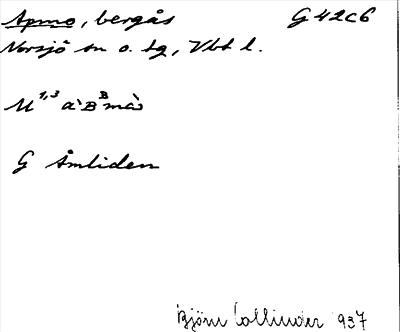 Apmo, bergås G42c6
Norsjö sn o. tg, Vbt l.
U 1,3 àBBmà
G Åmliden
Björn Collinder 937